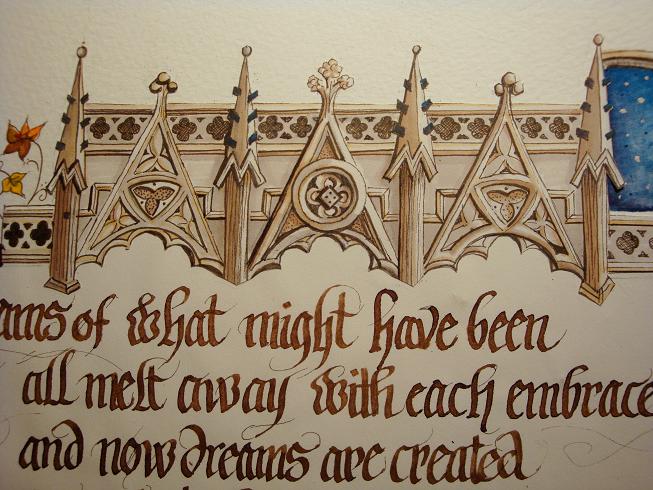 ams of what might have been
all melt away with each embrace
and now dreams are created